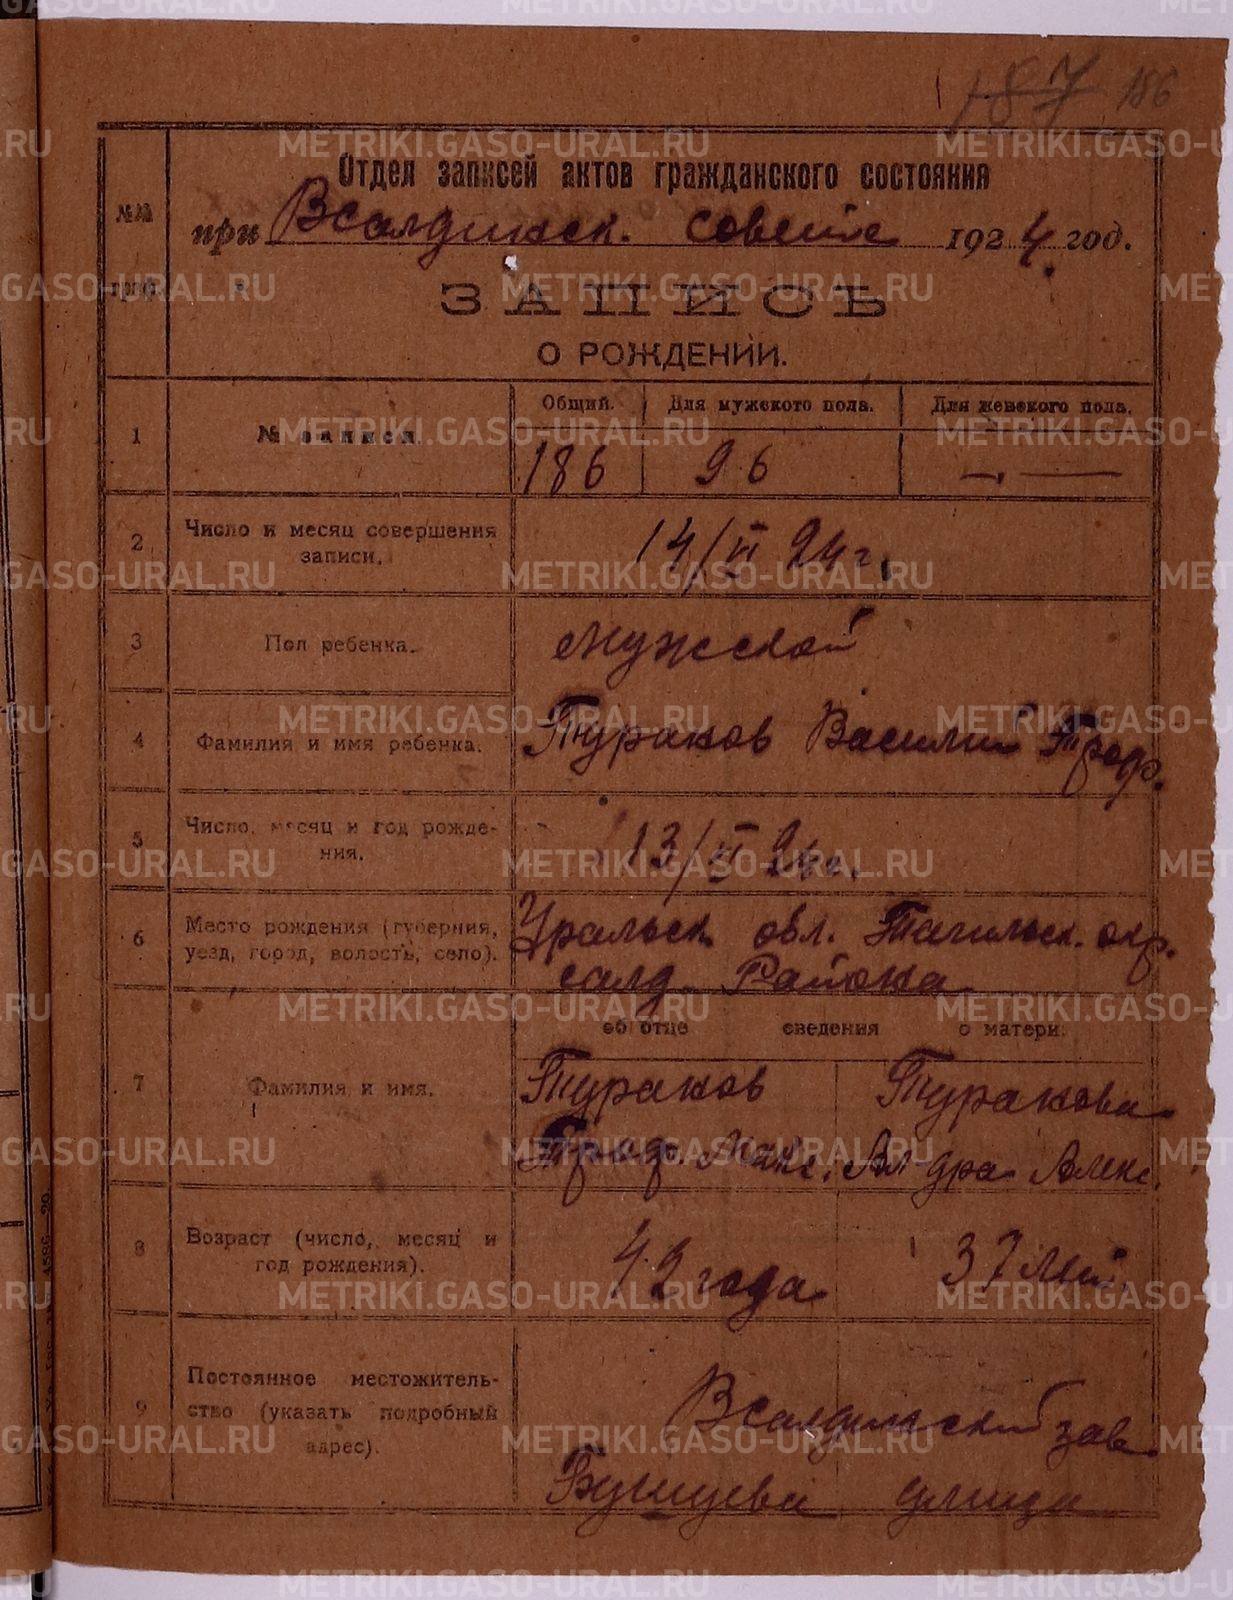 187 186
Отдел записей актов гражданского состояния
№№ граф.
при Всалдинск. совете 1924 год.
ЗАПИСЬ
О РОЖДЕНИИ.
Общий. Для мужского пола. Для женского пола.
1 № записи.
186 96 —
2 Число и месяц совершения записи. 14/VI 24 г.
3 Пол ребенка. мужской
4 Фамилия и имя ребенка. Тураков Василий Троф.
5 Число, месяц и год рождения. 13/VI 24 г.
6 Место рождения (губерния, уезд, город, волость, село). Уральск. обл. Тагильск. окр.
салд. Района
об отце сведения о матери.
7 Фамилия и имя. Тураков Туракова
Троф. Макс. Ал-дра Алекс.
8 Возраст (число, месяц и год рождения). 42 года 37 лет
9 Постоянное местожительство (указать подробный адрес). Всалдинский зав.
улица
METRIKI.GASO-URAL.RU